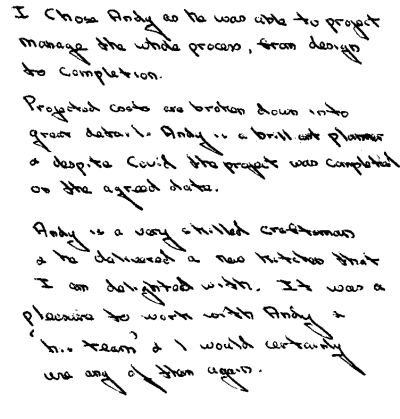 I chose Andy as he was able to project
manage the whole process, from design
to completion.
Projected costs are broken down into
great detail. Andy is a brilliant planner
& despite Covid the project was completed
on the agreed date.
Andy is a very skilled craftsman
& he delivered a new kitchen that
I am delighted with. It was a
pleasure to work with Andy &
"his team" & I would certainly
use any of them again.